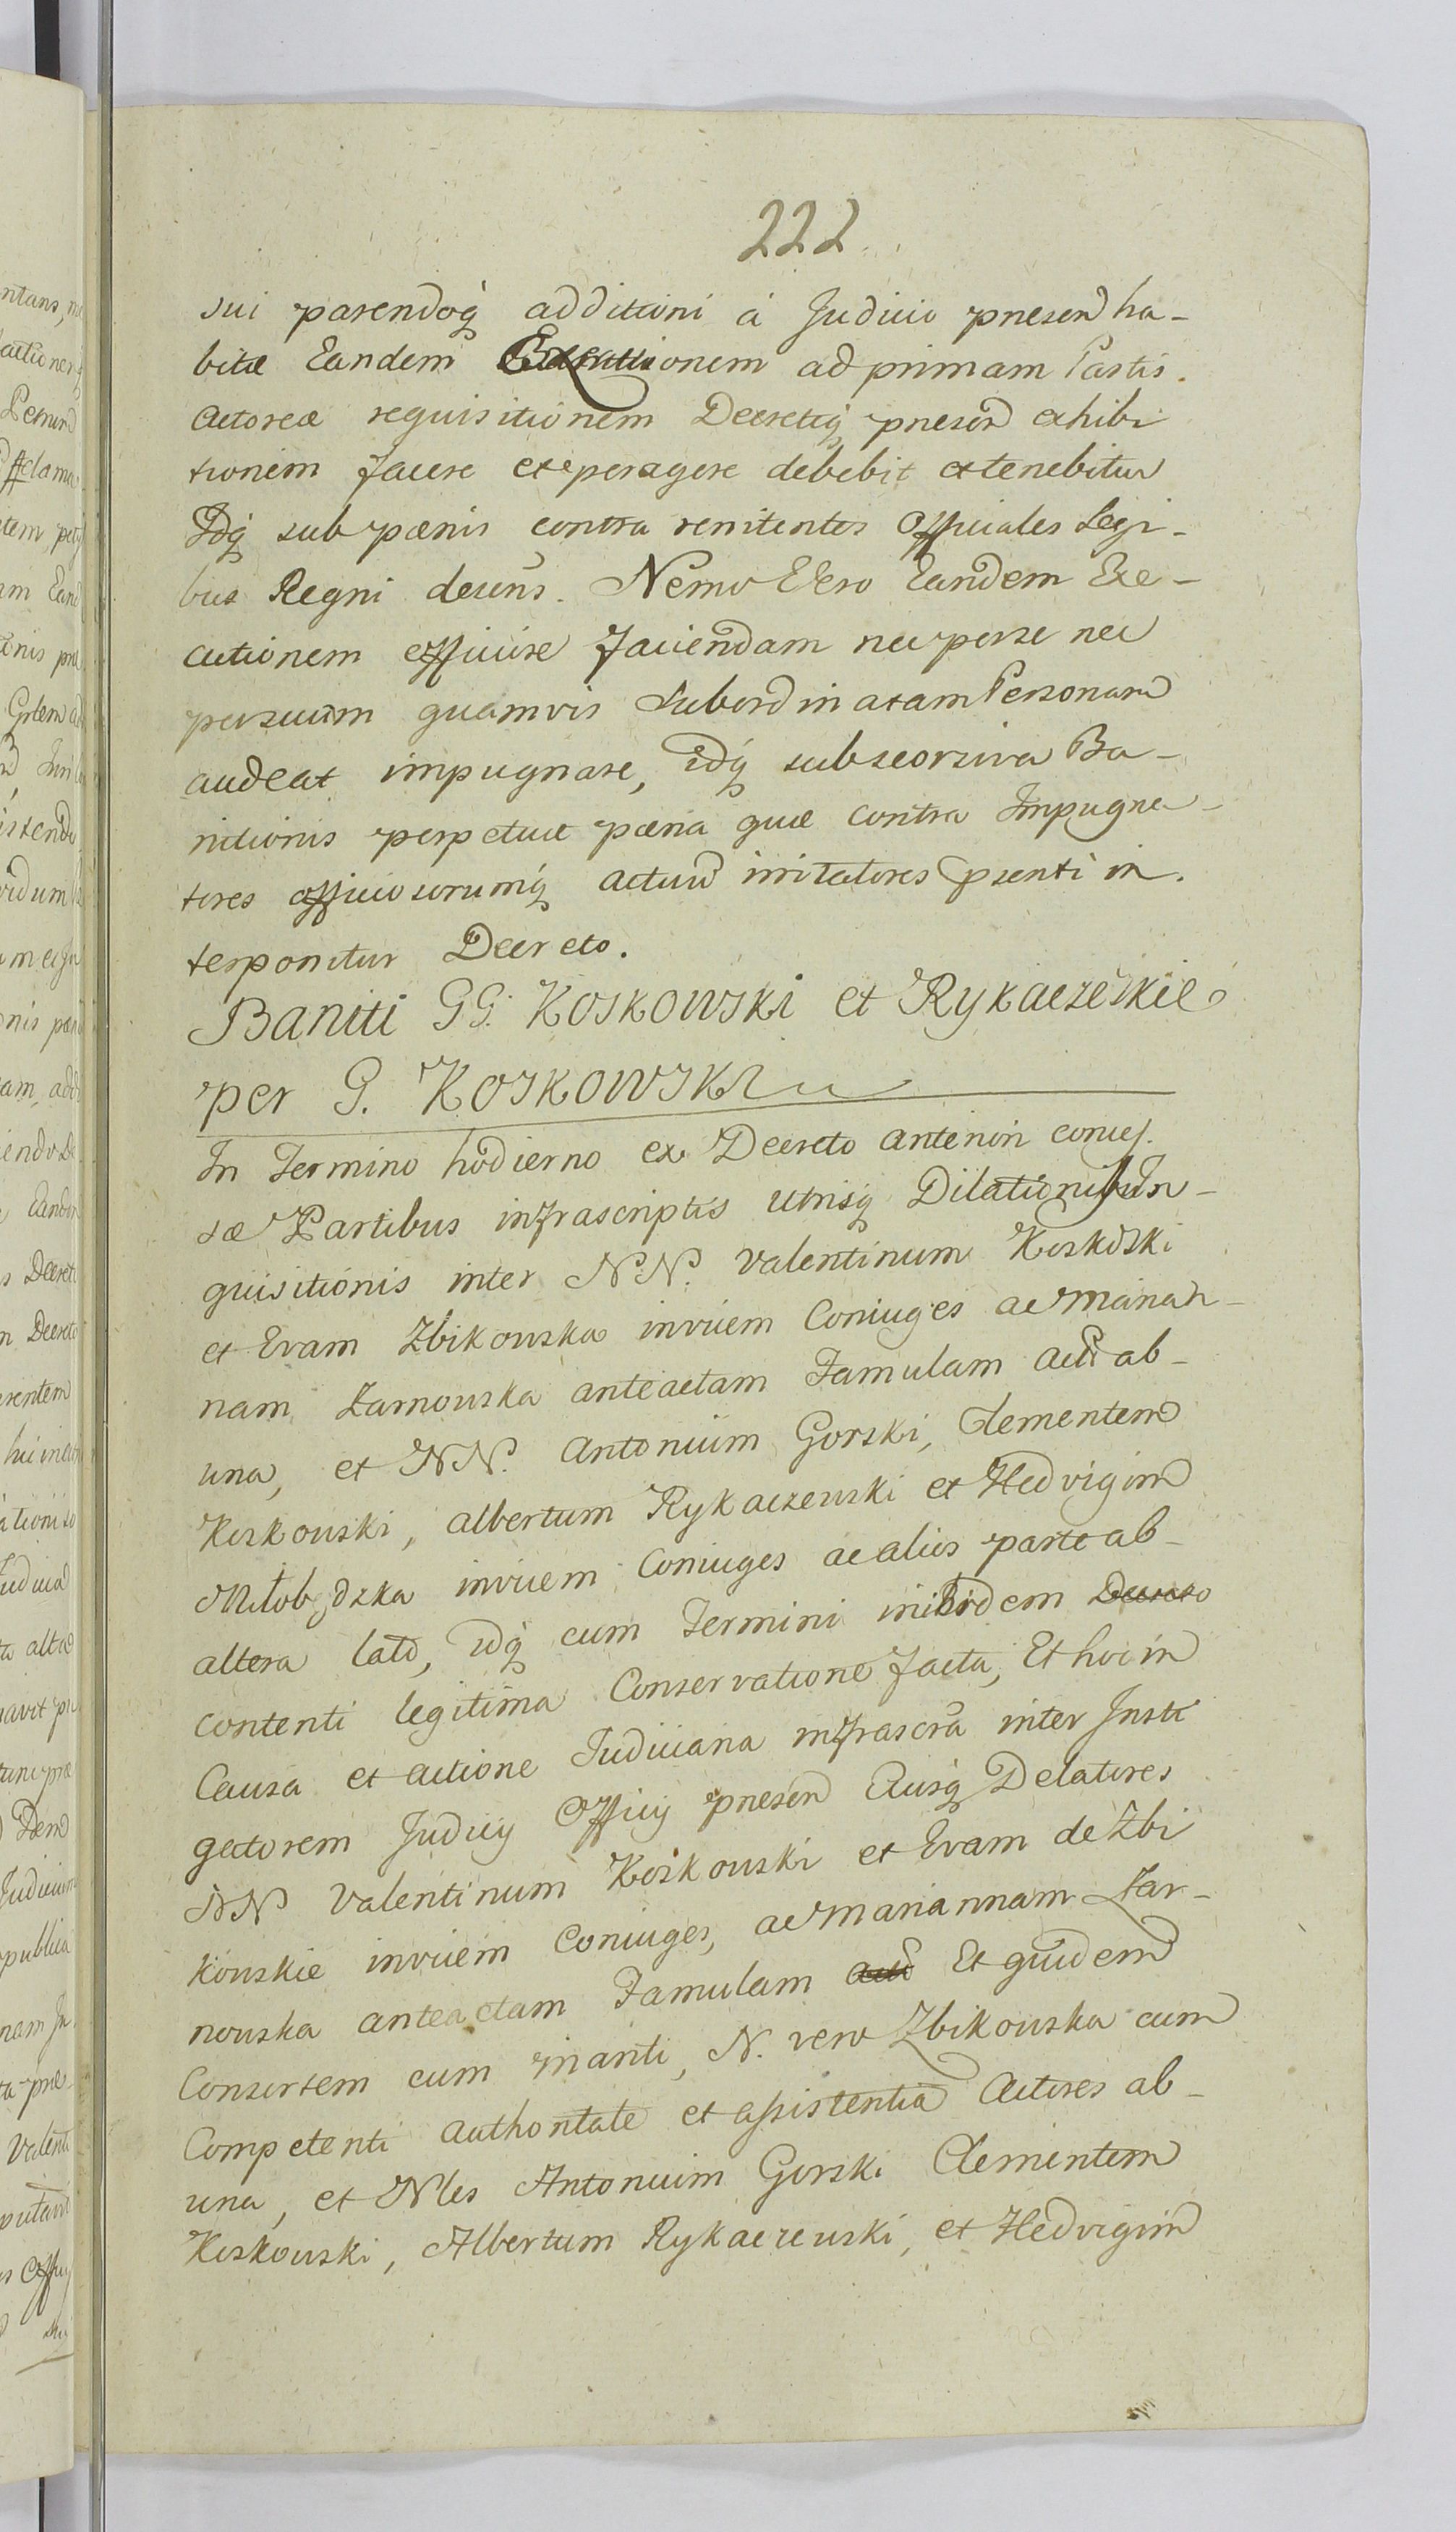 222
sui parendoq́ additioni à Judicio pnesend ha-
bitæ Eandem Executionem ad primam Partis.
Actoreæ requisitionem Decretiq́ pnesen exhibi
tionem facere et peragere debebit et tenebitur
Idq́ sub pœnis contra renitentes Officiales Legi-
bus Regni desens. Nemo Vero Eandem Exe-
cutionem efficiose faciendam nec per se nec
per suam quamvis Subordinatam Personam
audeat impugnare, idq́ sub seorsiva Ba-
nitionis perpetuæ pœna quæ contra Impugna-
tores officiosorumq́ actuum irritatores psenti in.
terponitur Decreto.
Baniti GG. Koskowski et Rykaczeskie
per G. Koskowski
In Termino hodierno ex Decreto anteriori conces.
sæ Partibus infrascriptis utrisq́ Dilationibus In-
quisitionis inter N.N. Valentinum Koskoski
et Evam Zbikouska invicem Coniuges ac Marian-
nam Zarnouska anteactam Famulam act ab-
una, et NN. Antonium Gorski, Clementem
Koskouski, Albertum Rykaczeuski et Hedvigim
Miłobędzka invicem Coniuges ac alios parte ab-
altera lato, idq́ cum Termini inibidem
contenti legitima Conservatione facta, Et hoc in
Causa et actione Judiciaria infrascra inter Insti
gatorem Judicij Officij pnesen Eiusq́ Delatores
NN Valentinum Koskouski et Evam de Zbi
kouskie invicem Coniuges, ac Mariannam Zar-
nouska anteactam Famulam Et quidem
Consortem cum Mariti, N. vero Zbikouska cum
Competenti authoritate et assistentia Actores ab-
una, et Nles Antonium Gorski Clementem
Koskouski, Albertum Rykaczeuski, et Hedvigim